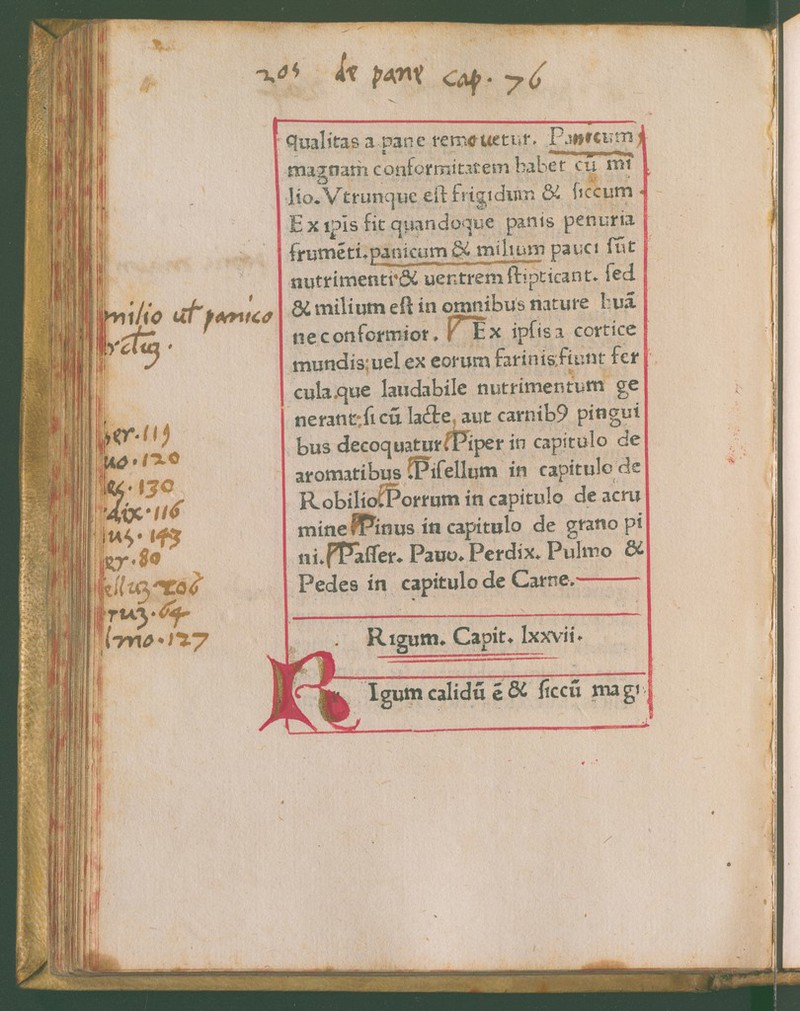 205 de pane cap. 76
qualitas a pane remouetur. Panicum
magnam conformitatem habet cū mi
lio. Vtrunque eſt frigidum & ſiccum.
Ex ipis fit quandoque panis penuria
frumēti. panicum & milium pauci ſūt
nutrimenti & uentrem ſtipticant. ſed
& milium eſt in omnibus nature huā
ne conformior. Ex ipſis a cortice
mundis; uel ex eorum farinis fiunt fer
cula. que laudabile nutrimentum ge
nerant: ſi cū lacte, aut carnib9 pingui
bus decoquatur. Piper in capitulo de
aromatibus. Piſellum in capitulo de
Robilio. Porrum in capitulo de acru
mine. Pinus in capitulo de grano pi
ni. Paſſer. Pauo. Perdix. Pulmo &
Pedes in capitulo de Carne.
Rigum. Capit. lxxvii.
RIgum calidū ē & ſiccū magi
milio ut panico
er. 115
uo. 120
es. 130
dix. 116
us. 143
er. 80
206
64
lmo. 127